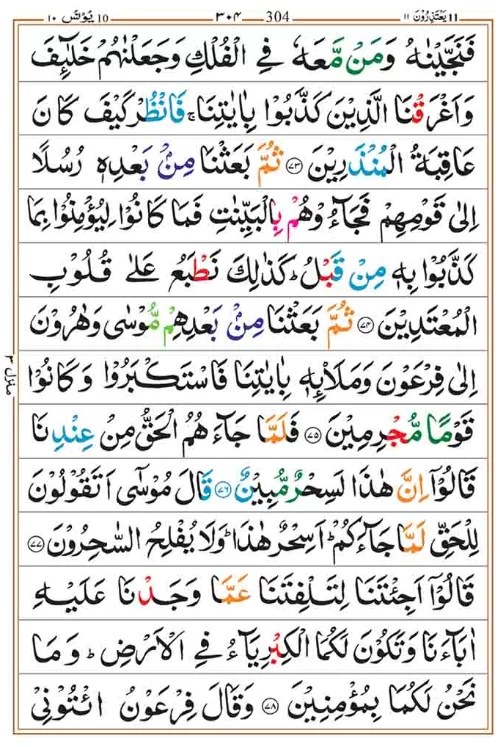 یعتذرون ١١ 11 ٣٠٤ 304 یونس ١٠ 10
فَنَجَّيْنٰهُ وَمَنْ مَّعَهٗ فِي الْفُلْكِ وَجَعَلْنٰهُمْ خَلٰٓىِٕفَ
وَاَغْرَقْنَا الَّذِيْنَ كَذَّبُوْا بِاٰيٰتِنَا ۚ فَانْظُرْ كَيْفَ كَانَ
عَاقِبَةُ الْمُنْذَرِيْنَ ﴿٧٣﴾ ثُمَّ بَعَثْنَا مِنْۢ بَعْدِهٖ رُسُلًا
اِلٰى قَوْمِهِمْ فَجَآءُوْهُمْ بِالْبَيِّنٰتِ فَمَا كَانُوْا لِيُؤْمِنُوْا بِمَا
كَذَّبُوْا بِهٖ مِنْ قَبْلُ ؕ كَذٰلِكَ نَطْبَعُ عَلٰى قُلُوْبِ
الْمُعْتَدِيْنَ ﴿٧٤﴾ ثُمَّ بَعَثْنَا مِنْۢ بَعْدِهِمْ مُّوْسٰى وَهٰرُوْنَ
اِلٰى فِرْعَوْنَ وَمَلَا۟ىِٕهٖ بِاٰيٰتِنَا فَاسْتَكْبَرُوْا وَكَانُوْا
قَوْمًا مُّجْرِمِيْنَ ﴿٧٥﴾ فَلَمَّا جَآءَهُمُ الْحَقُّ مِنْ عِنْدِنَا
قَالُوْٓا اِنَّ هٰذَا لَسِحْرٌ مُّبِيْنٌ ﴿٧٦﴾ قَالَ مُوْسٰٓى اَتَقُوْلُوْنَ
لِلْحَقِّ لَمَّا جَآءَكُمْ ؕ اَسِحْرٌ هٰذَا ؕ وَلَا يُفْلِحُ السّٰحِرُوْنَ ﴿٧٧﴾
قَالُوْٓا اَجِئْتَنَا لِتَلْفِتَنَا عَمَّا وَجَدْنَا عَلَيْهِ
اٰبَآءَنَا وَتَكُوْنَ لَكُمَا الْكِبْرِيَآءُ فِي الْاَرْضِ ؕ وَمَا
نَحْنُ لَكُمَا بِمُؤْمِنِيْنَ ﴿٧٨﴾ وَقَالَ فِرْعَوْنُ ائْتُوْنِيْ
منزل ٣